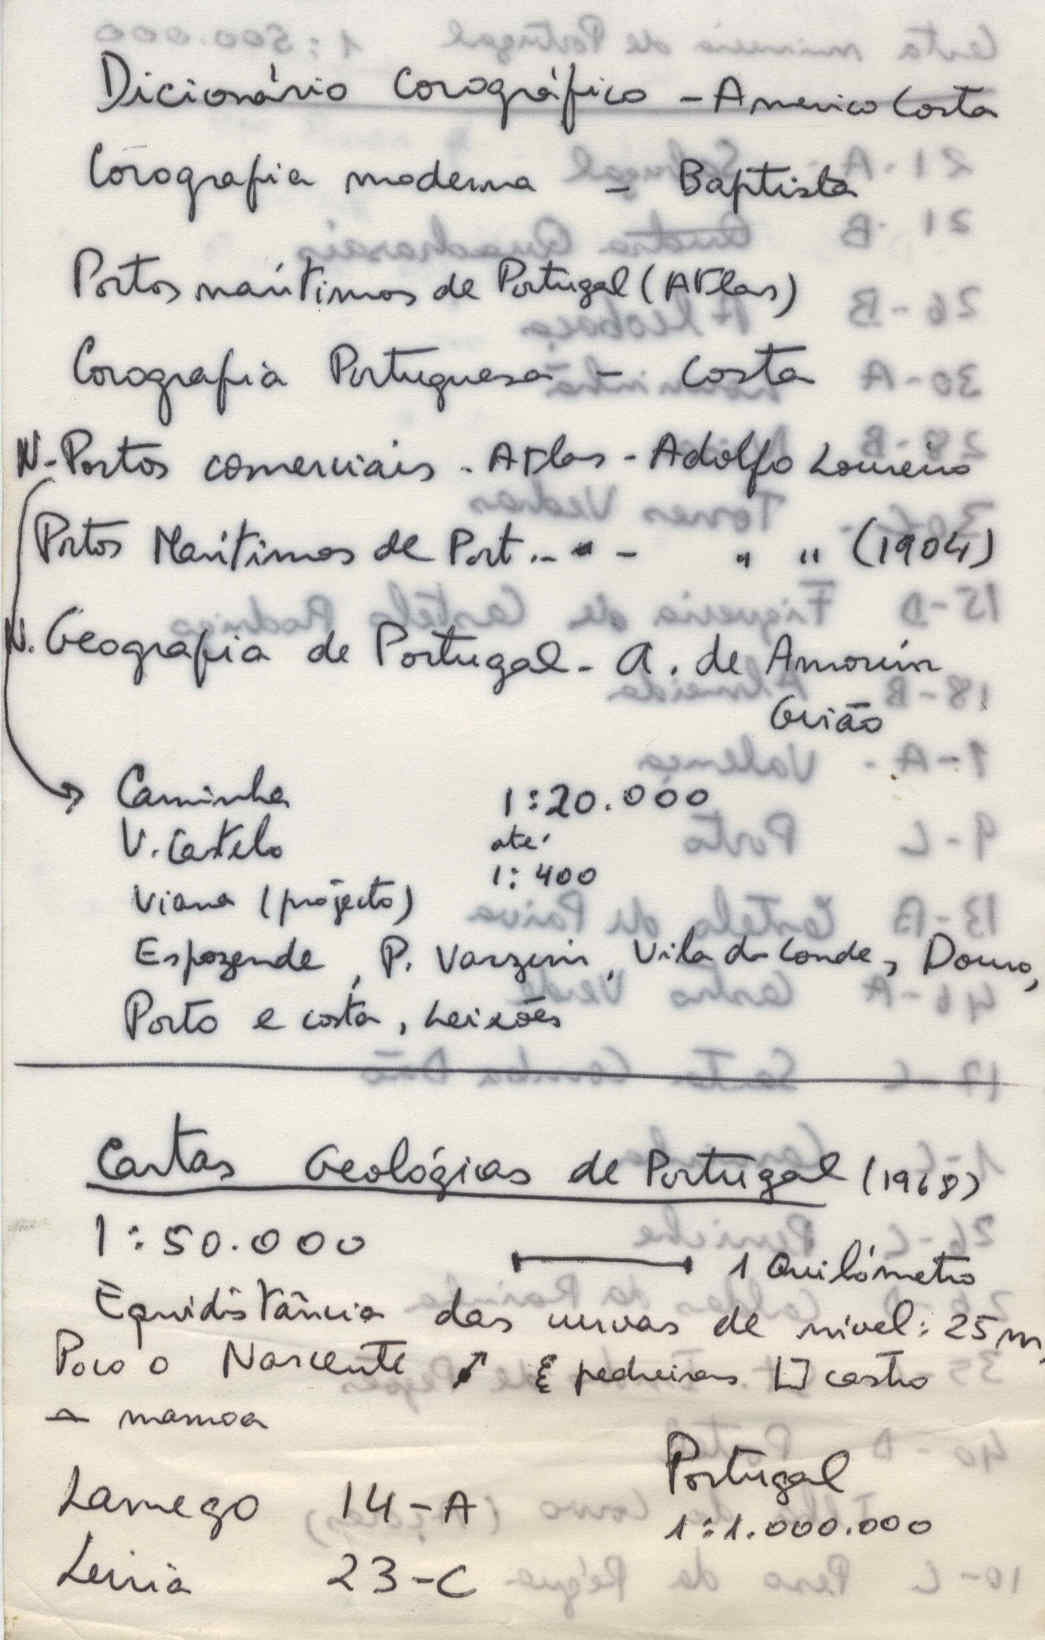 Dicionário Corográfico - Americo Costa
Corografia moderna - Baptista
Portos marítimos de Portugal (Atlas)
Corografia Portuguesa - Costa
N-Portos comerciais - Atlas - Adolfo Loureiro
Portos Marítimos de Port.. " - " " (1904)
N. Geografia de Portugal - A. de Amorim
Girão
Caminha 1:20.000
V. Castelo até
1:400
Viana (projecto)
Espozende, P. Varzim, Vila do Conde, Douro,
Porto e costa, Leixões
Cartas Geológicas de Portugal (1968)
1:50.000
1 Quilómetro
Equidistância das curvas de nível: 25 m,
Poço o Nascente pedreiras castro
mamoa
Portugal
Lamego 14-A
1:1.000.000
Leiria 23-C